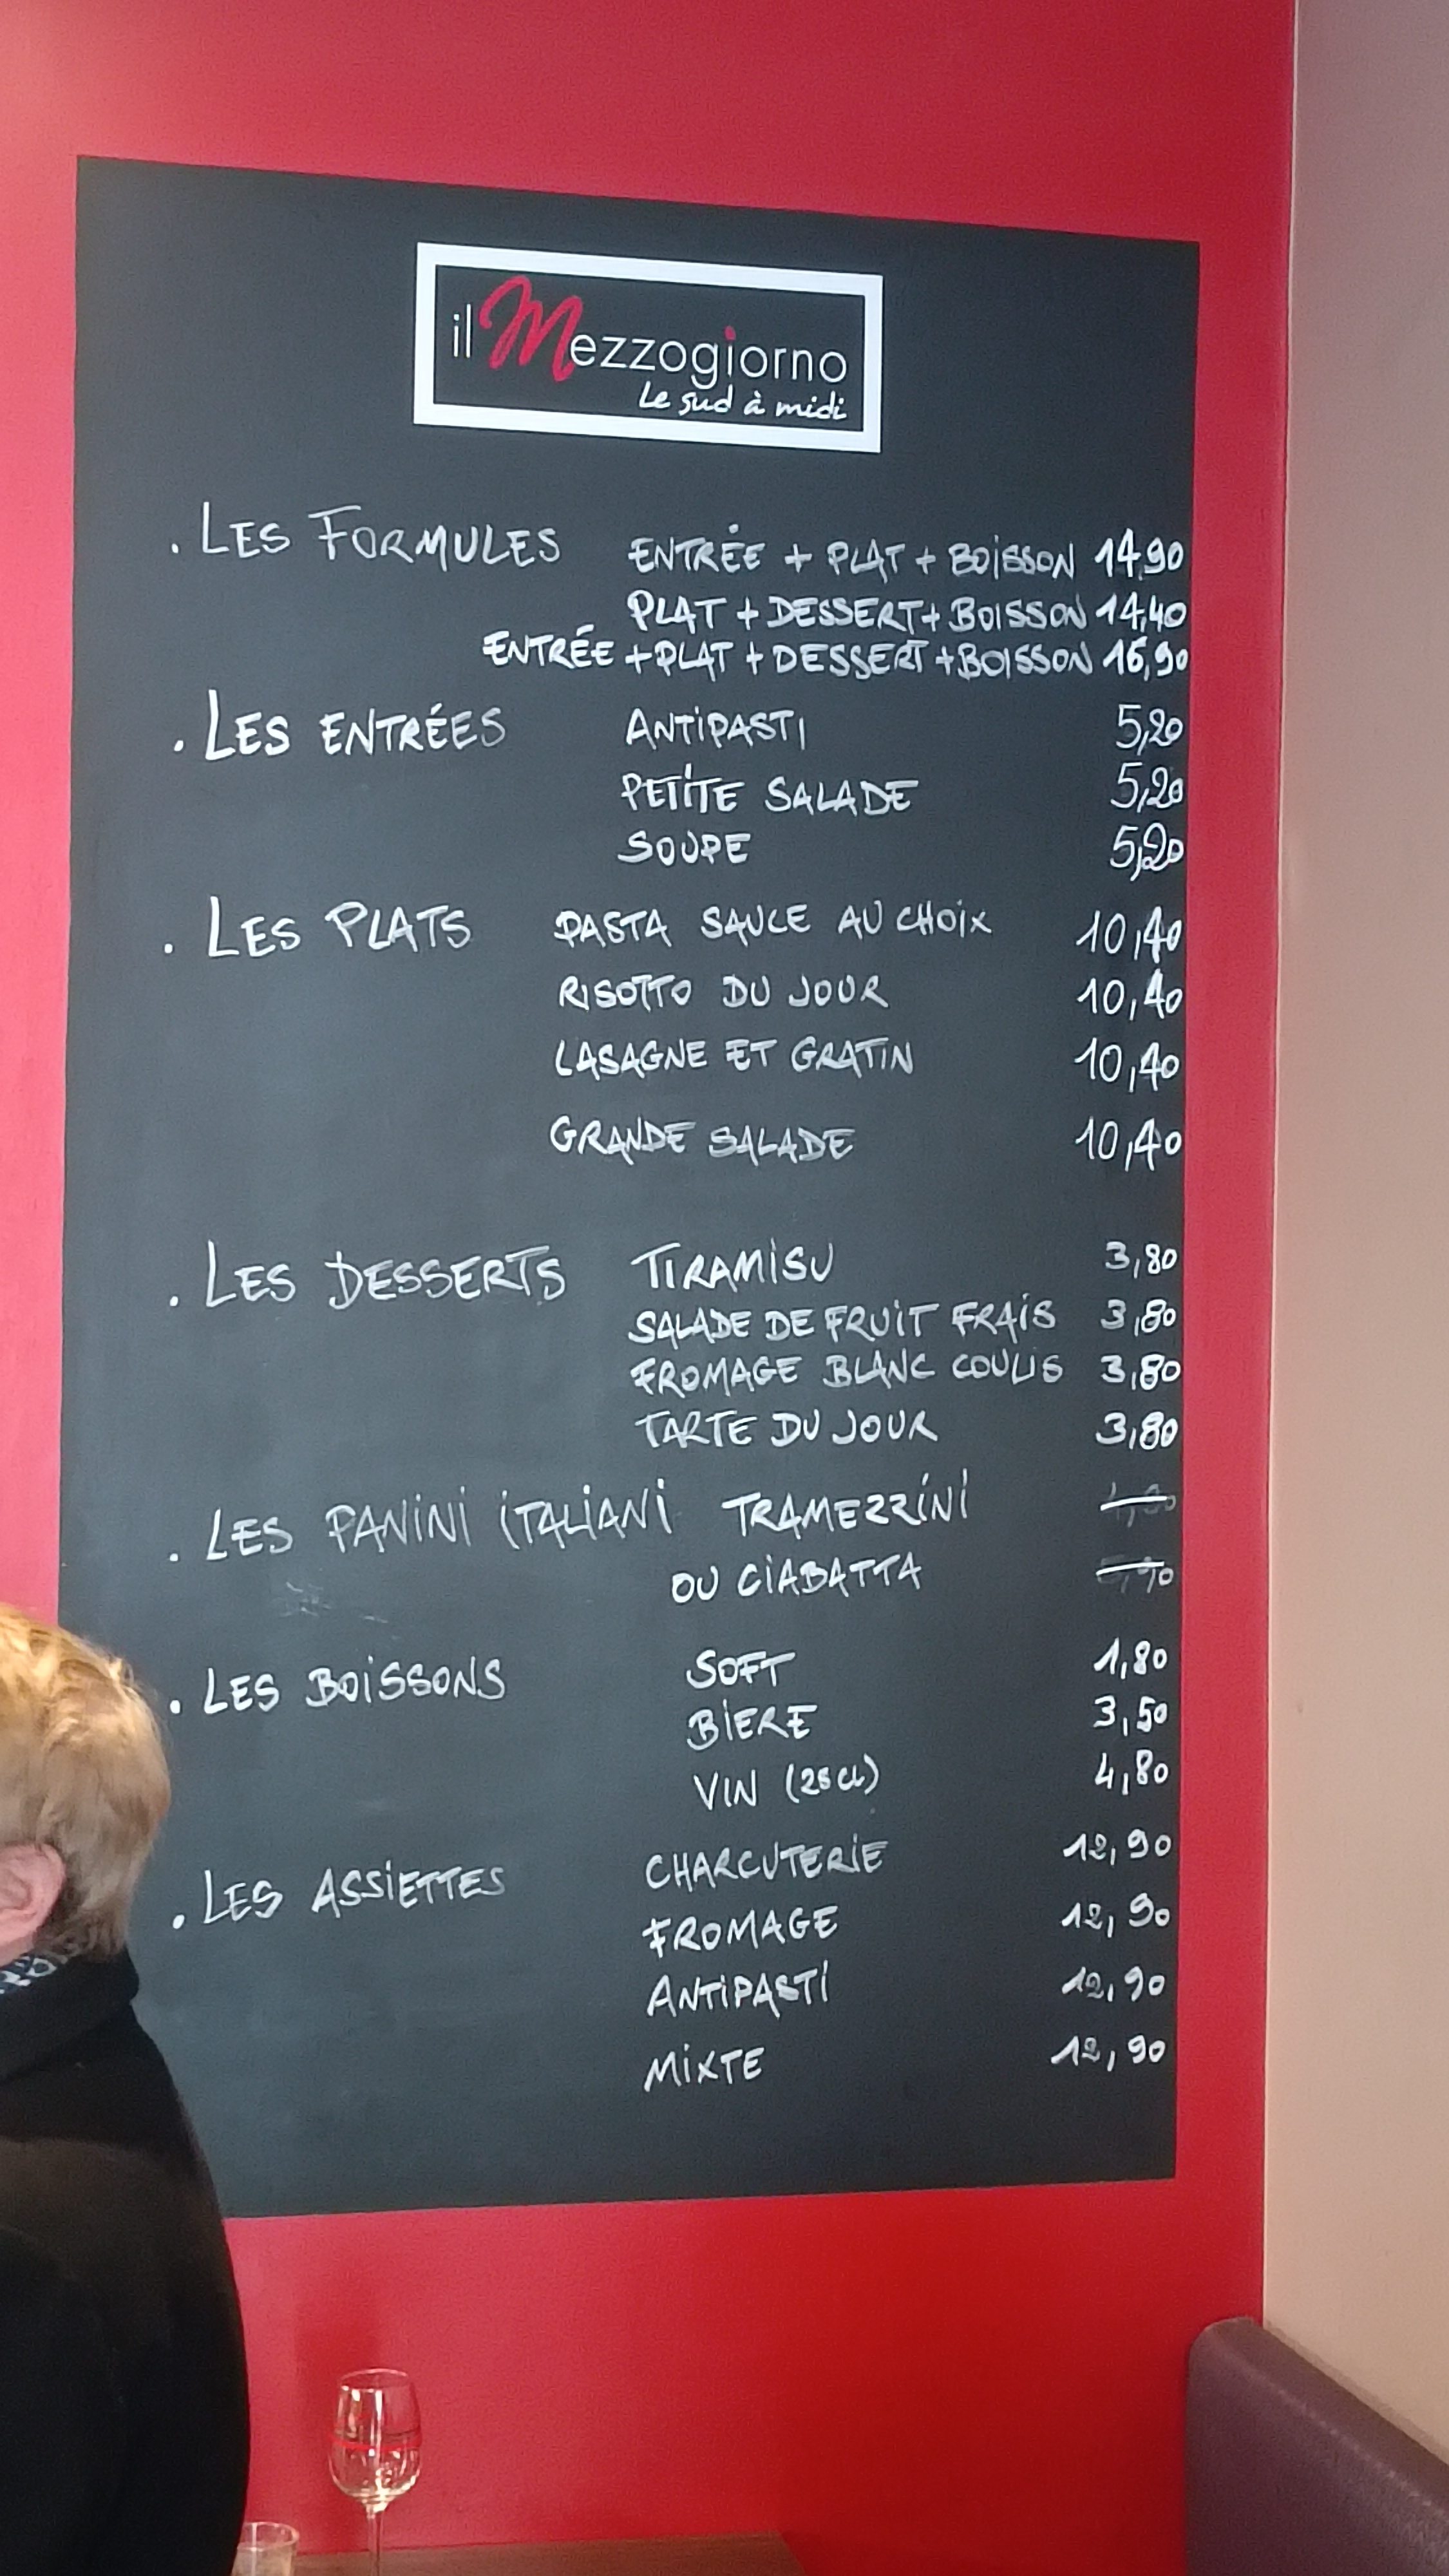 il Mezzogiorno
Le sud à midi
. LES FORMULES ENTRÉE + PLAT + BOISSON 14,90
PLAT + DESSERT + BOISSON 14,40
ENTRÉE + PLAT + DESSERT + BOISSON 16,90
. LES ENTRÉES ANTIPASTI 5,20
PETITE SALADE 5,20
SOUPE 5,20
. LES PLATS PASTA SAUCE AU CHOIX 10,40
RISOTTO DU JOUR 10,40
LASAGNE ET GRATIN 10,40
GRANDE SALADE 10,40
. LES DESSERTS TIRAMISU 3,80
SALADE DE FRUIT FRAIS 3,80
FROMAGE BLANC COULIS 3,80
TARTE DU JOUR 3,80
. LES PANINI ITALIANI TRAMEZZINI
OU CIABATTA
. LES BOISSONS SOFT 1,80
BIERE 3,50
VIN (25 cl) 4,80
. LES ASSIETTES CHARCUTERIE 12,90
FROMAGE 12,90
ANTIPASTI 12,90
MIXTE 12,90